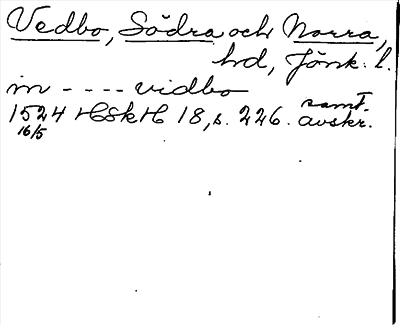 Vedbo, Södra och Norra,
hd, Jönk. l.
in - - - - vidbo
1524 HSkH 18, s. 226. samt. avskr.
16/5